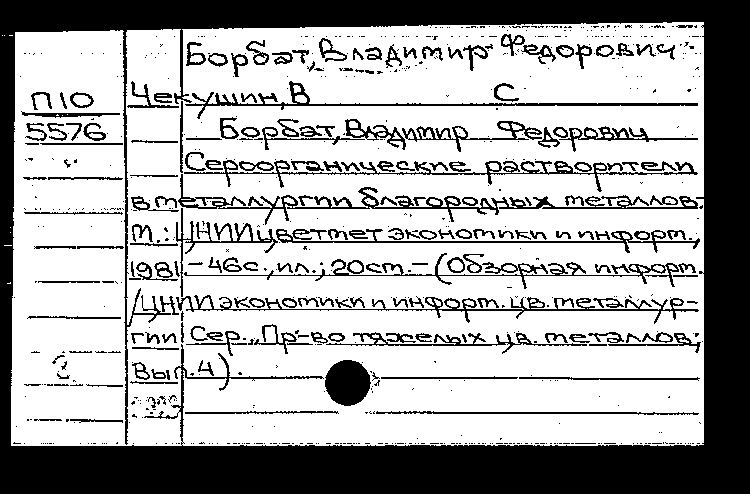 Борбат, Владимир Федорович
П10 Чекушин, В С
5576 Борбат, Владимир Федорович
Сероорганические растворители
в металлургии благородных металлов.
М.: ЦНИИцветмет экономики и информ.,
1981.-46с., ил.; 20см.-(Обзорная информ.
/ЦНИИ экономики и информ. цв. металлур-
гии Сер. „Пр-во тяжелых цв. металлов;
Вып.4).